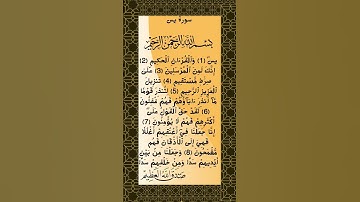 سورة يس
بسم الله الرحمن الرحيم
يسٓ (1) وَالْقُرْءَانِ الْحَكِيمِ (2)
إِنَّكَ لَمِنَ الْمُرْسَلِينَ (3) عَلَىٰ
صِرَٰطٍ مُّسْتَقِيمٍ (4) تَنزِيلَ
الْعَزِيزِ الرَّحِيمِ (5) لِتُنذِرَ قَوْمًا
مَّآ أُنذِرَ ءَابَآؤُهُمْ فَهُمْ غَٰفِلُونَ
(6) لَقَدْ حَقَّ الْقَوْلُ عَلَىٰٓ
أَكْثَرِهِمْ فَهُمْ لَا يُؤْمِنُونَ (7)
إِنَّا جَعَلْنَا فِىٓ أَعْنَٰقِهِمْ أَغْلَٰلًا
فَهِىَ إِلَى الْأَذْقَانِ فَهُم
مُّقْمَحُونَ (8) وَجَعَلْنَا مِنۢ بَيْنِ
أَيْدِيهِمْ سَدًّا وَمِنْ خَلْفِهِمْ سَدًّا
صدق الله العظيم